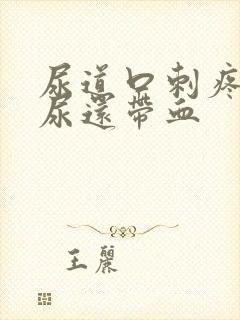 尿道口刺疼
尿還帶血
王麗